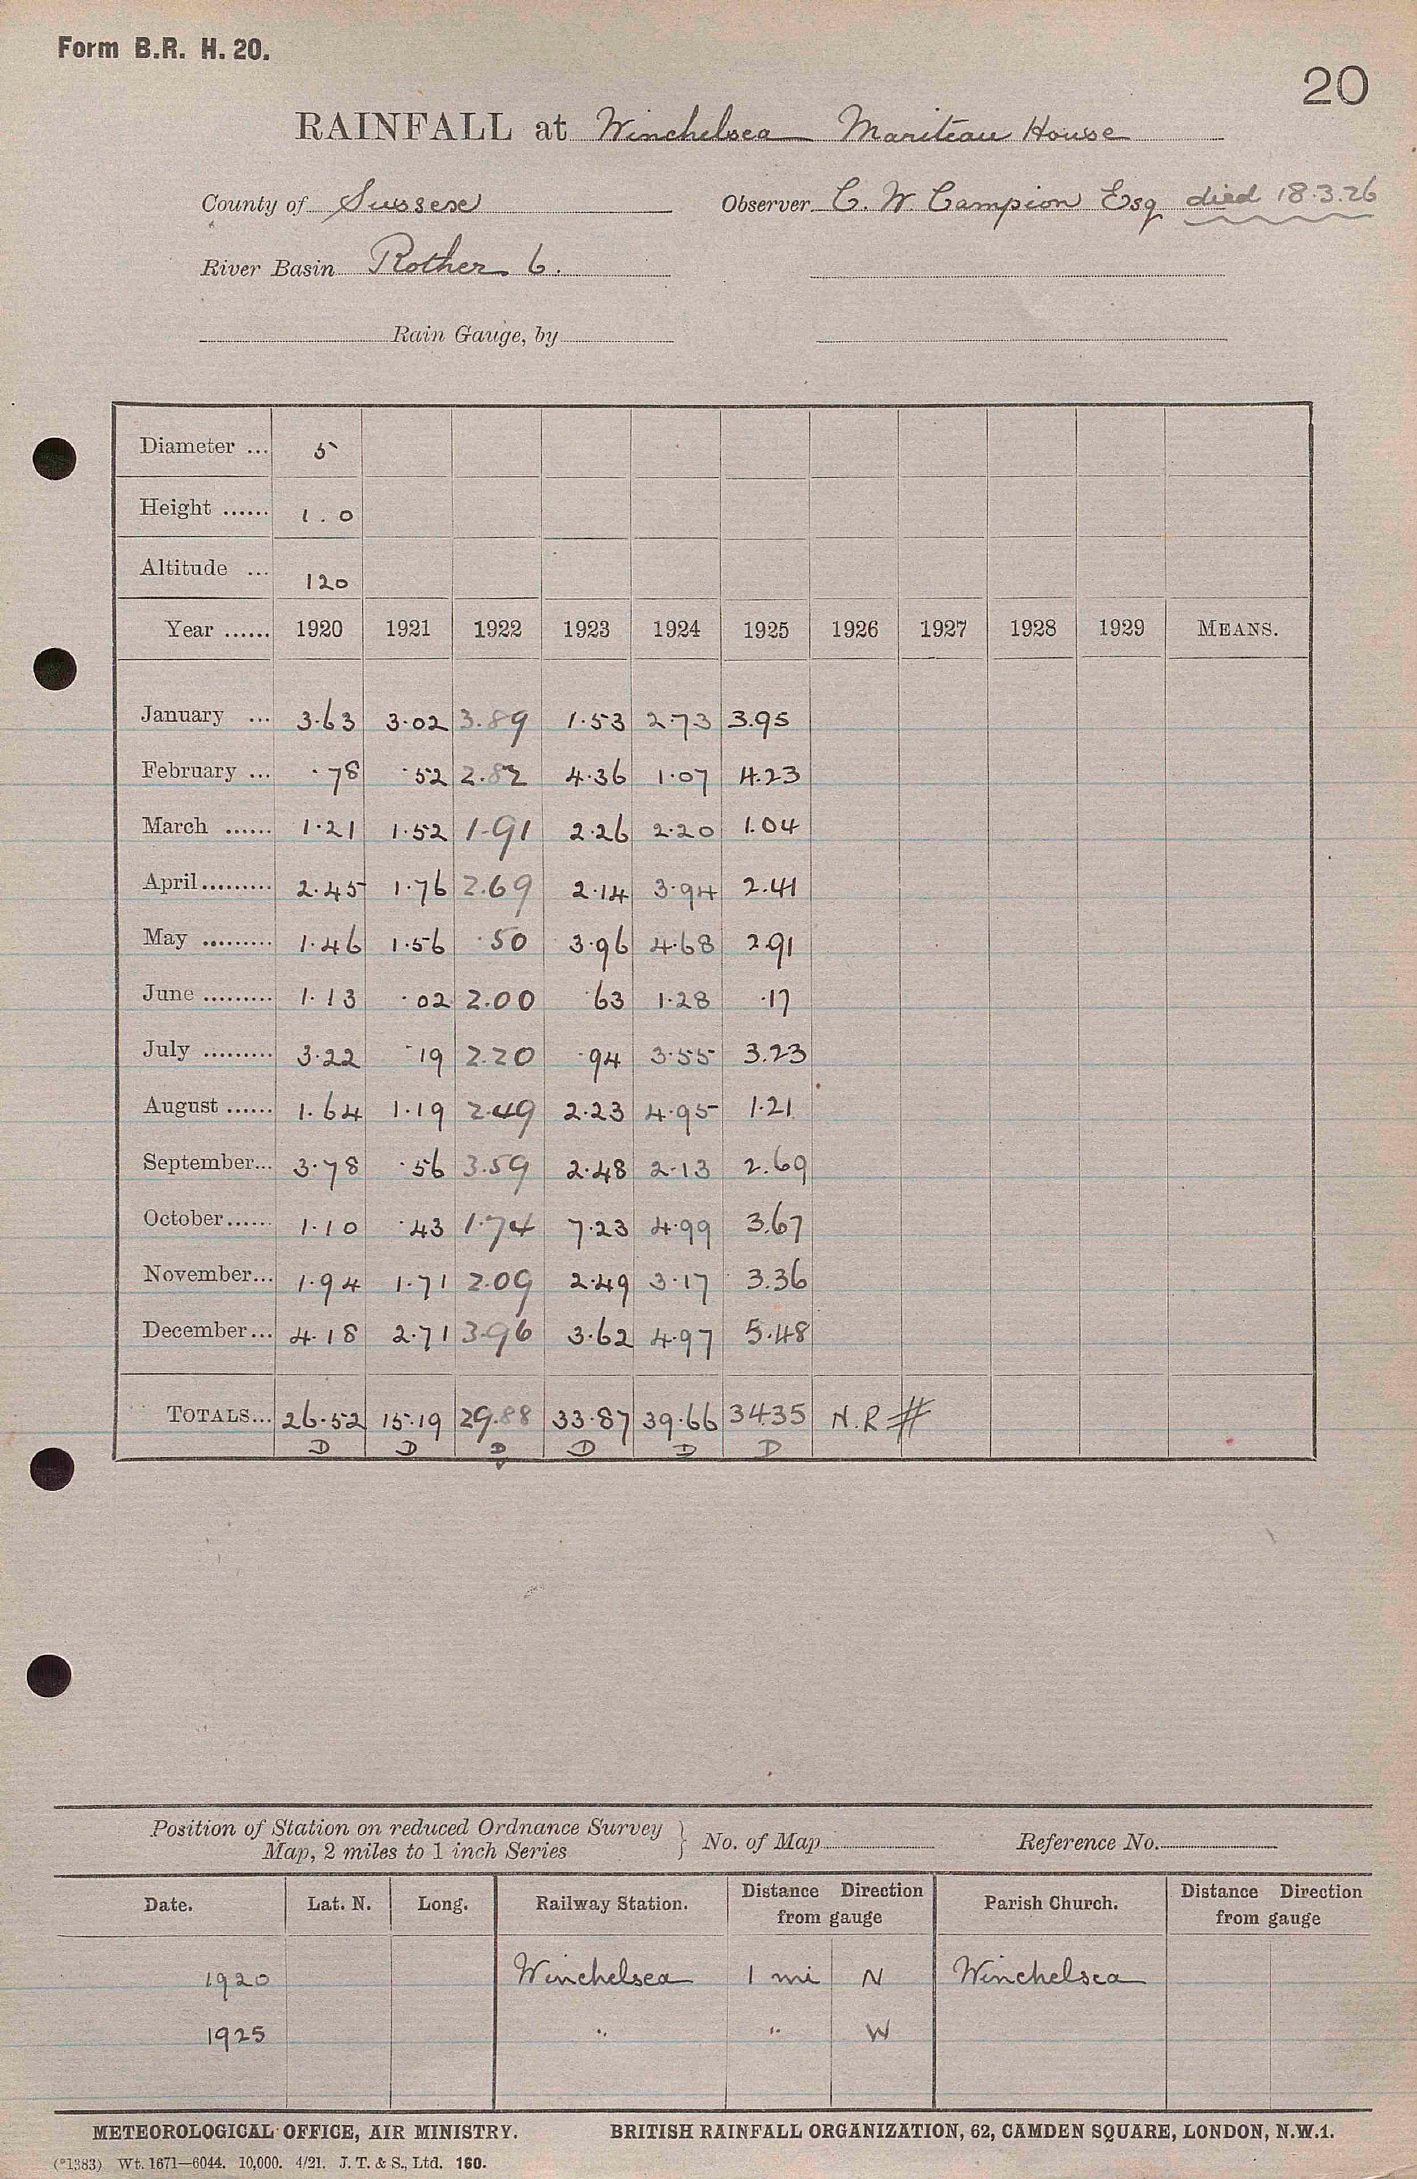 Form B.R. H. 20.
20
RAINFALL at Winchelsea Mariteau House
County of Sussex Observer C. W Campion Esq died 18.3.26
River Basin Rother 6.
Rain Gauge, by
Diameter ... 5
Height ...... 1.0
Altitude ... 120
Year ...... 1920 1921 1922 1923 1924 1925 1926 1927 1928 1929 MEANS.
January ... 3.63 3.02 3.89 1.53 2.73 3.95
February ... .78 .52 2.82 4.36 1.07 4.23
March ...... 1.21 1.52 1.91 2.26 2.20 1.04
April ......... 2.45 1.76 2.69 2.14 3.94 2.41
May ......... 1.46 1.56 .50 3.96 4.68 2.91
June ......... 1.13 .02 2.00 .63 1.28 .17
July ......... 3.22 .19 2.20 .94 3.55 3.23
August ...... 1.64 1.19 2.49 2.23 4.95 1.21
September... 3.78 .56 3.59 2.48 2.13 2.69
October...... 1.10 .43 1.74 7.23 4.99 3.67
November... 1.94 1.71 2.09 2.49 3.17 3.36
December... 4.18 2.71 3.96 3.62 4.97 5.48
TOTALS... 26.52 15.19 29.88 33.87 39.66 34.35 N.R #
D D D D D D
Position of Station on reduced Ordnance Survey
Map, 2 miles to 1 inch Series } No. of Map Reference No.
Date. Lat. N. Long. Railway Station. Distance Direction from gauge Parish Church. Distance Direction from gauge
1920 Winchelsea 1 mi N Winchelsea
1925 " " W
METEOROLOGICAL OFFICE, AIR MINISTRY. BRITISH RAINFALL ORGANIZATION, 62, CAMDEN SQUARE, LONDON, N.W.1.
(*1383) Wt. 1671—6044. 10,000. 4/21. J. T. & S., Ltd. 160.